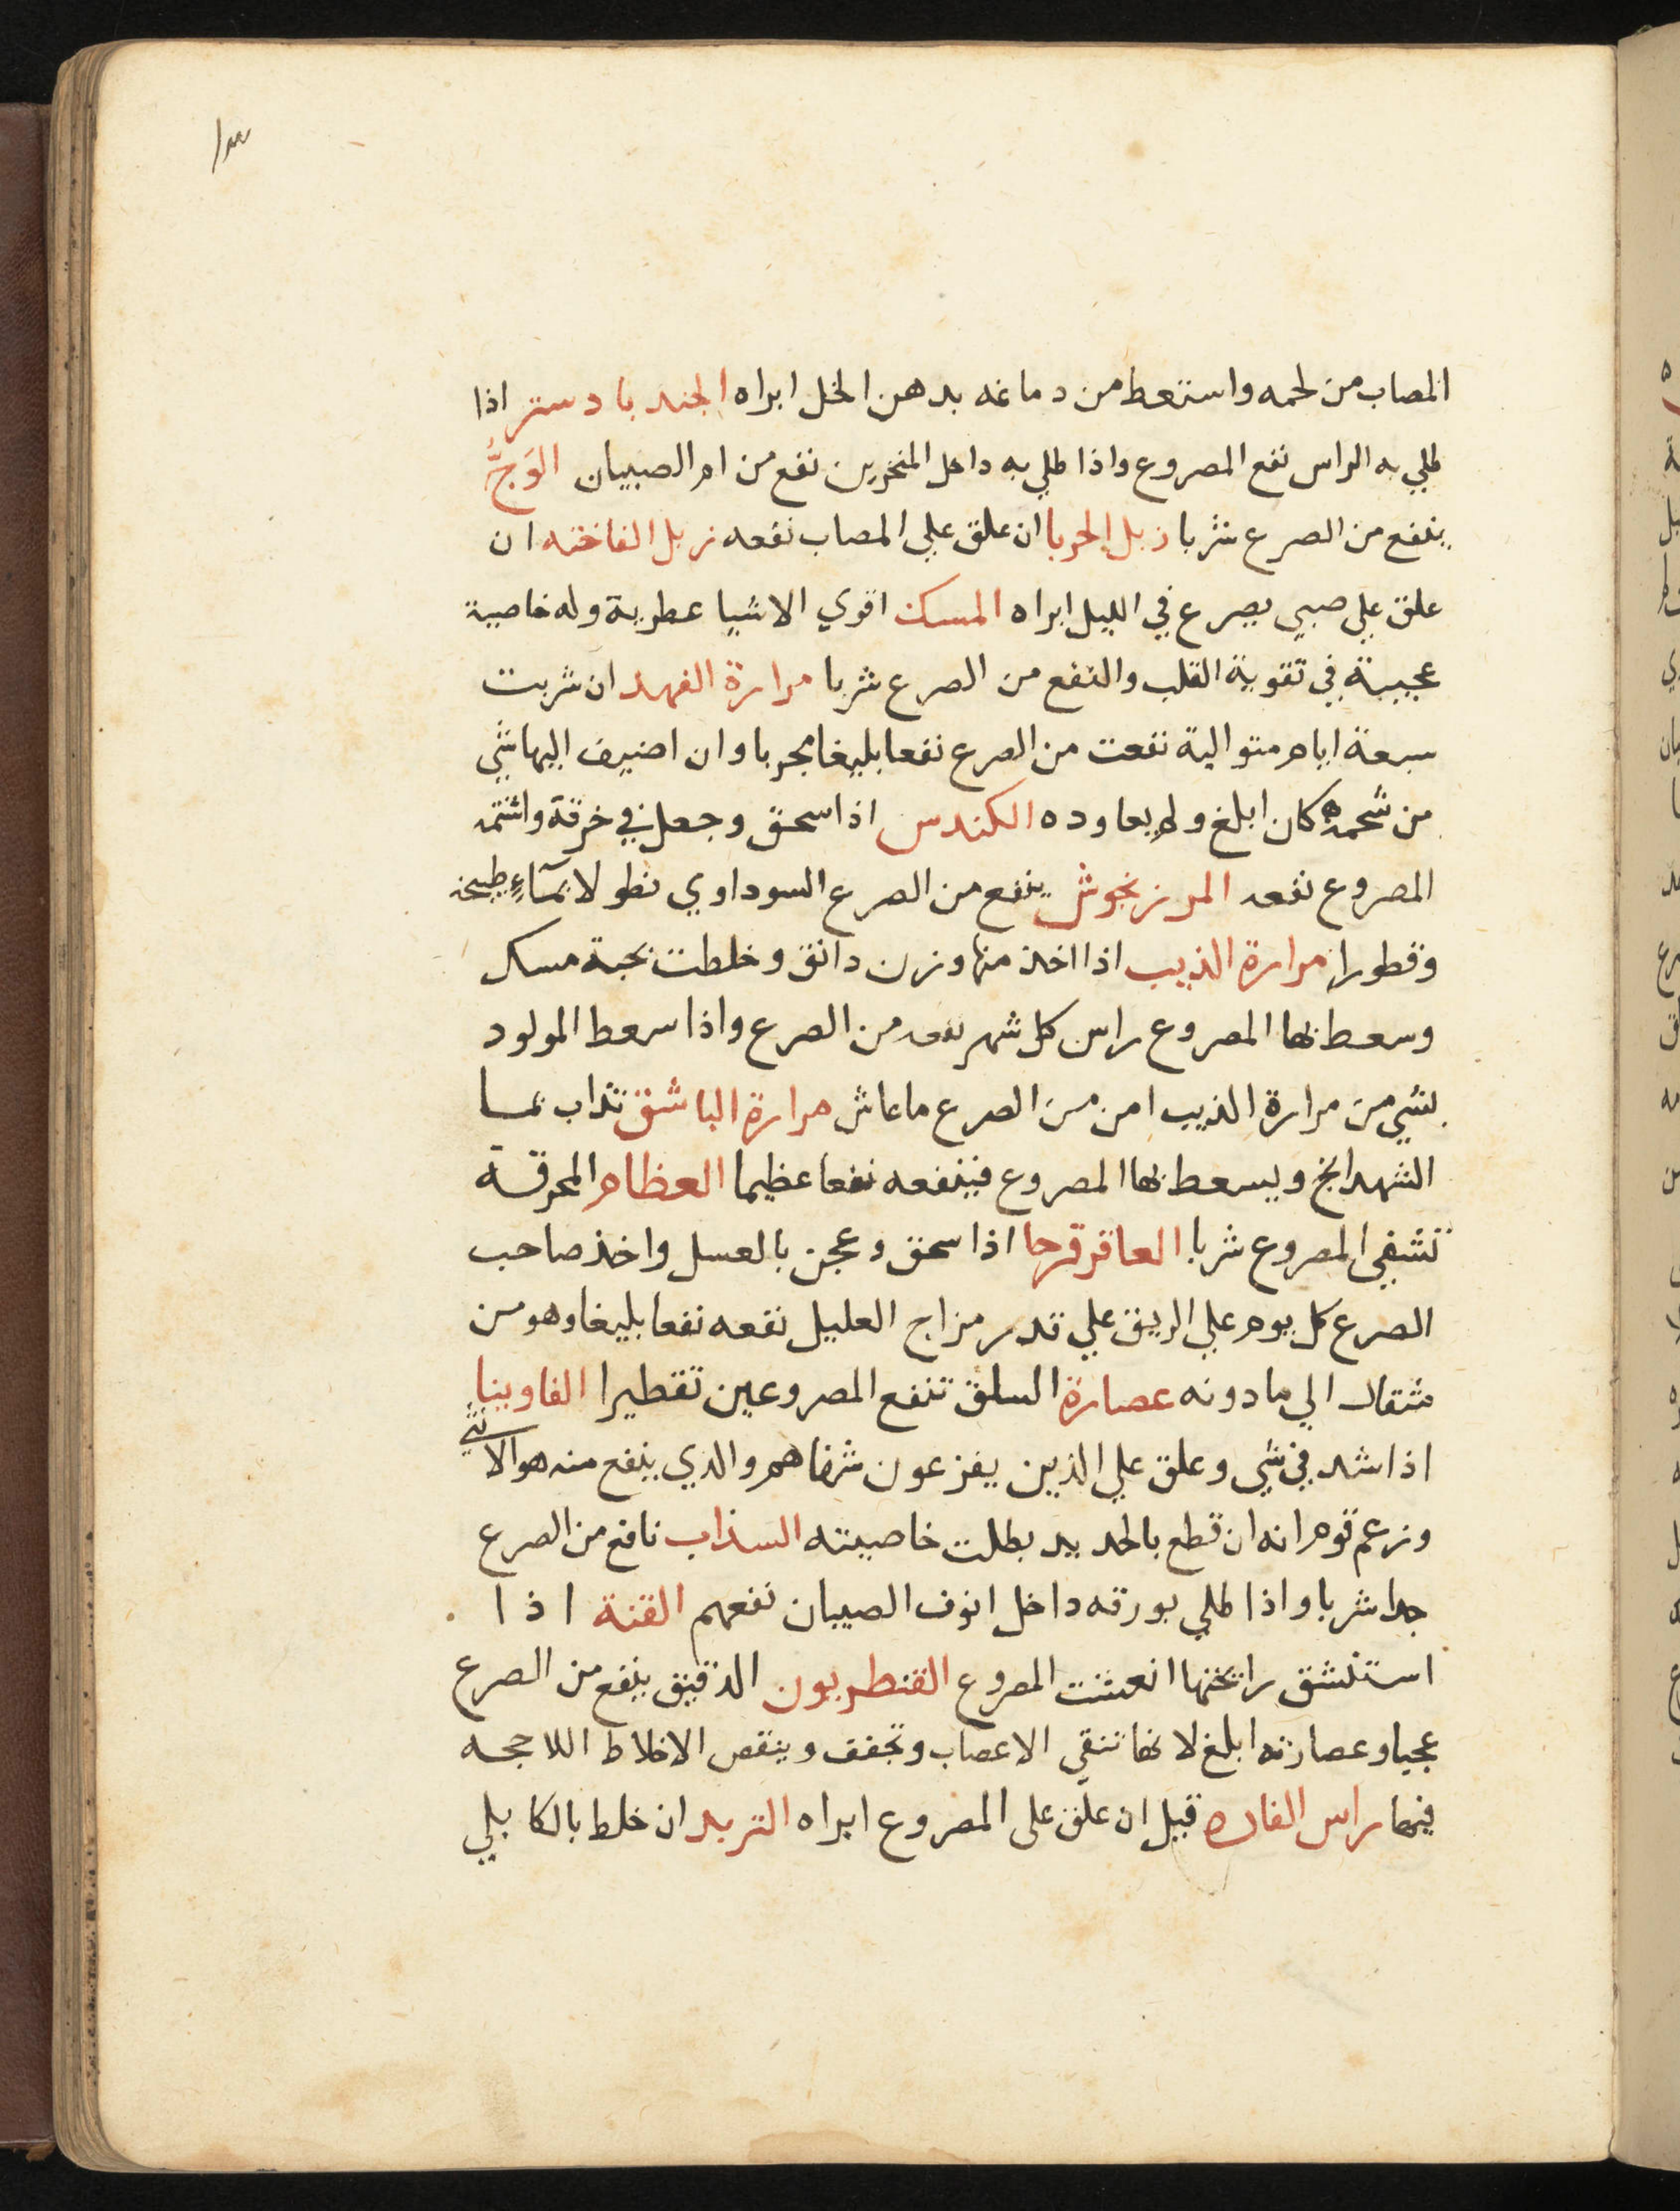 ١٣
المصاب من لحمه واستعط من دماغه بدهن الخل ابراه الجندبادستر اذا
طلي به الراس نفع المصروع واذا طلي به داخل المنخرين نفع من ام الصبيان الوَجُّ
ينفع من الصرع شربا زبل الحربا ان علق علي المصاب نفعه زبل الفاخته ان
علق علي صبي يصرع في الليل ابراه المسك اقوي الاشيا عطرية وله خاصية
عجيبة في تقوية القلب والنفع من الصرع شربا مرارة الفهد ان شربت
سبعة ايام متوالية نفعت من الصرع نفعا بليغا مجربا وان اضيف اليها شي
من شحمه كان ابلغ ولم يعاوده الكندس اذا سحق وجعل في خرقة واشتمه
المصروع نفعه المرزنجوش ينفع من الصرع السوداوي نطولا بمآءِ طبيخه
وقطورا مرارة الذيب اذا اخذ منها وزن دانق وخلطت بحبة مسك
وسعط بها المصروع راس كل شهر نفعه من الصرع واذا سعط المولود
بشي من مرارة الذيب امن من الصرع ما عاش مرارة الباشق تذاب بما
الشهدانج ويسعط بها المصروع فينفعه نفعا عظيما العظام المحرقة
تشفي المصروع شربا العاقرقرحا اذا سحق وعجن بالعسل واخذ صاحب
الصرع كل يوم علي الريق علي قدر مزاج العليل نفعه نفعا بليغا وهو من
مثقال الي ما دونه عصارة السلق تنفع المصروعين تقطيرا الفاوينا
اذا شد في شي وعلق علي الذين يفزعون شفاهم والذي ينفع منه هو الانثي
وزعم قوم انه ان قطع بالحديد بطلت خاصيته السذاب نافع من الصرع
جدا شربا واذا طلي بورقه داخل انوف الصبيان نفعهم القنة اذا
استنشق رائحتها انعشت المصروع القنطريون الدقيق ينفع من الصرع
عجيبا وعصارته ابلغ لانها تنقي الاعصاب وتجفف وينقص الاخلاط اللاحجه
فيها راس الفاره قيل ان علق على المصروع ابراه التربد ان خلط بالكابلي